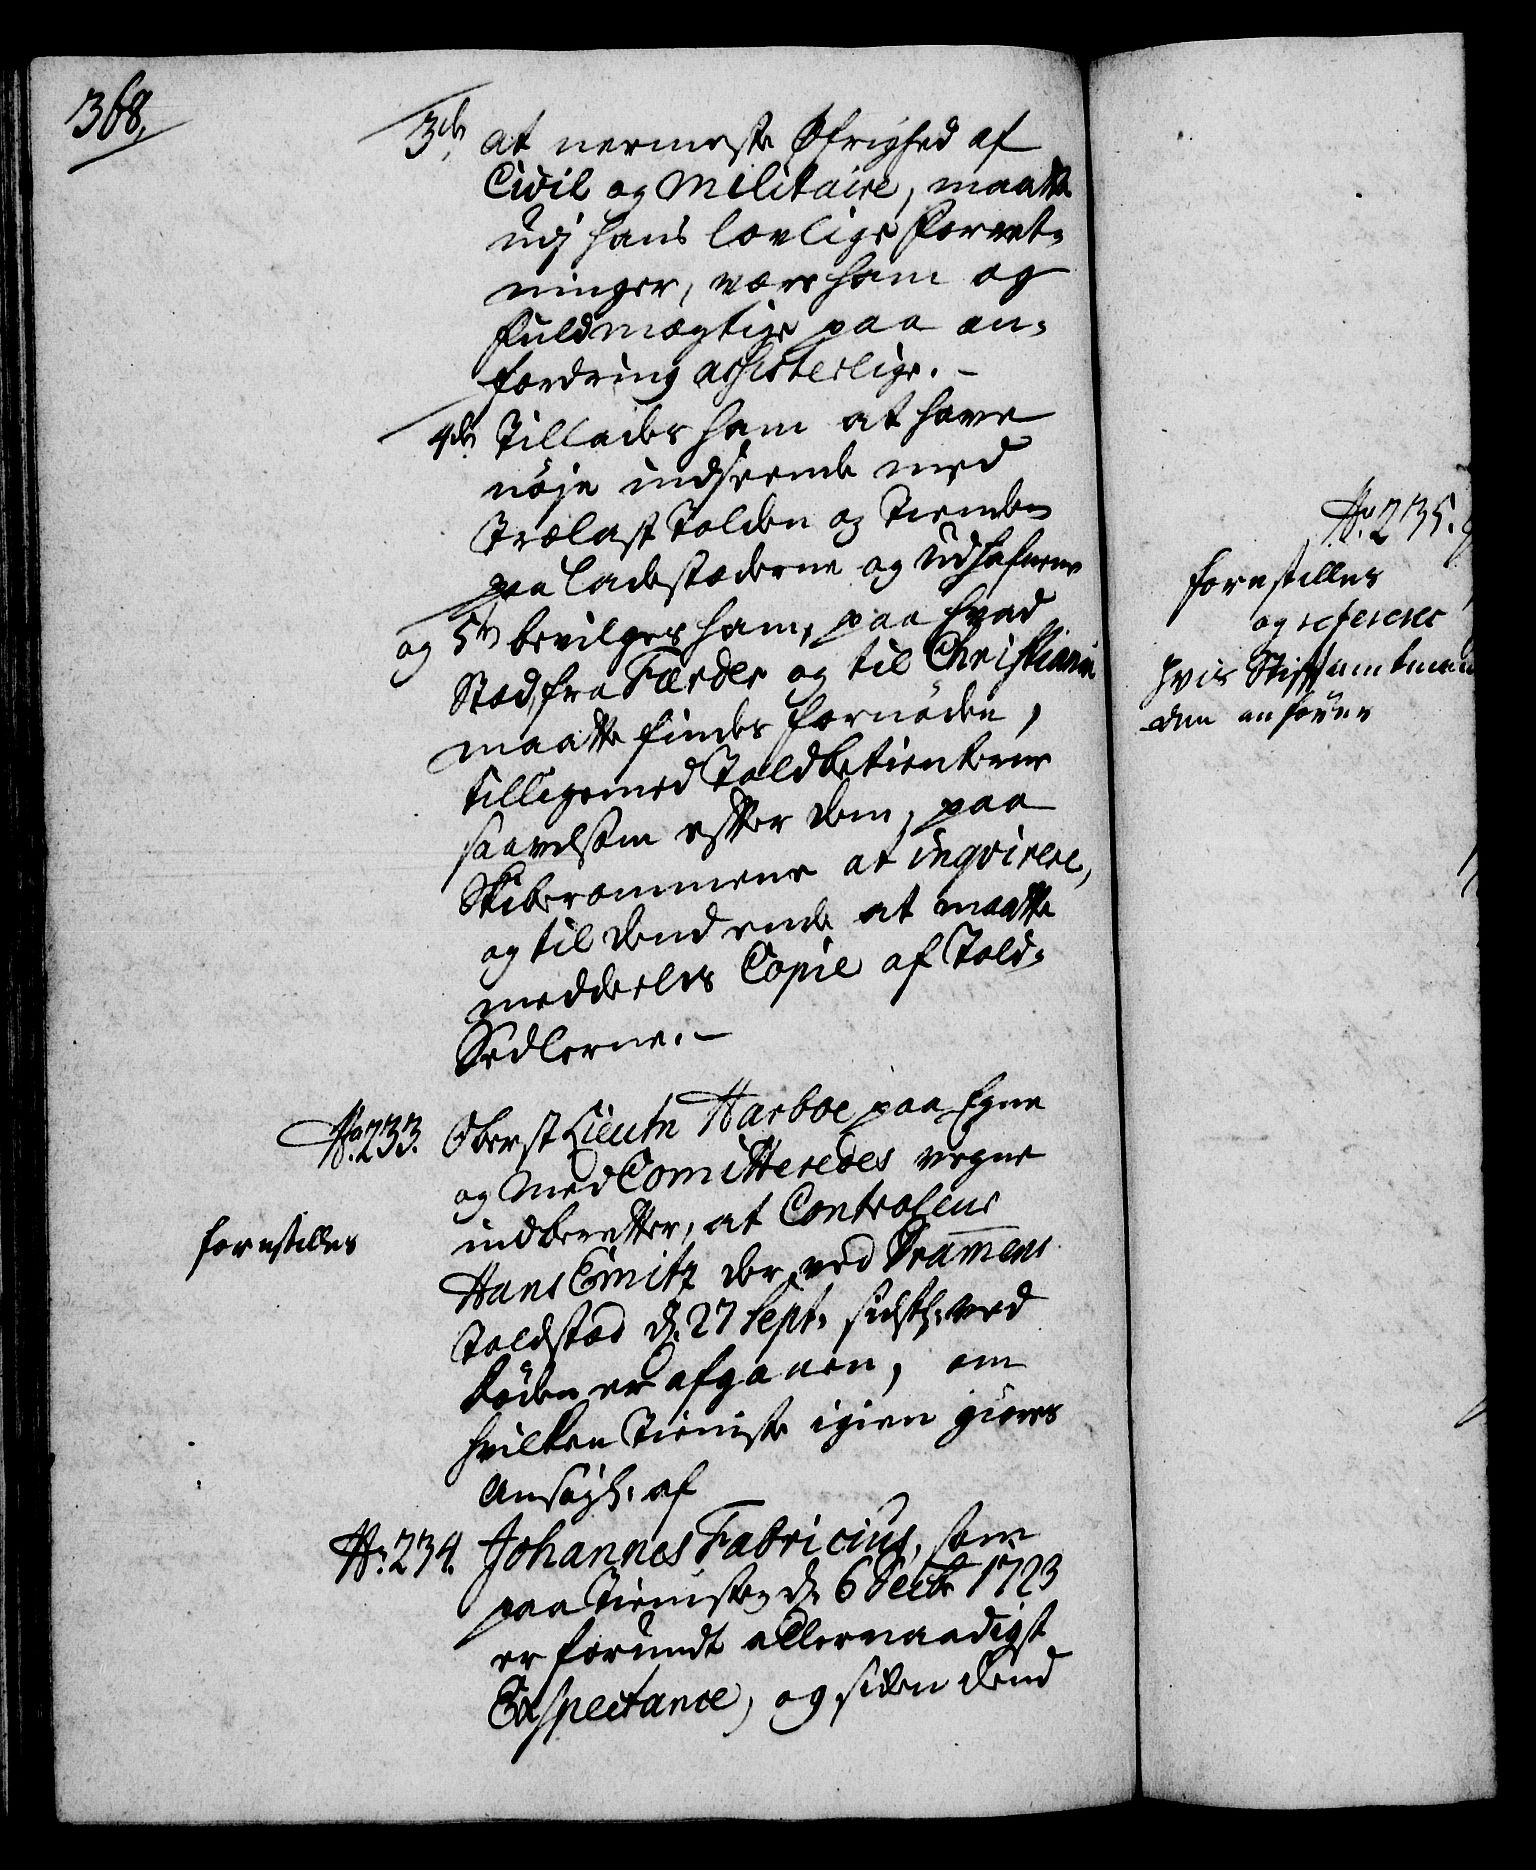 368.
3de at nermeste Øfrighed af
Civil og Militaire, maatte
udj hans lovlige Forret-
ninger, være ham og
Fuldmægtige paa an-
fordring assisterlige. -
4de Tillades ham at have
nøje indseende med
Trælast Tolden og Tienden
paa Ladestæderne og Udhafnene
og 5te bevilges ham, paa hvad
Stad, fra Færder og til Christiania
maatte findes fornøden,
tilligemed Toldbetienterne
saavelsom efter dem, paa
Skiberommene at inqvirere,
og til dend ende at maatte
meddeeles Copie af Told-
Sedlerne. -
No. 233. Oberst Lieutn Harboe paa Egne
og Med Comitteredes vegne
forestilles
indberetter, at Controleur
Hans Emitz der ved Dramens
Toldsted d. 27 Sept. sidstl. ved
døden er afgaaen, om
hvilken Tieniste igien giøres
Ansøgn. af
No. 234. Johannes Fabricius, som
paa Tienisten d. 6 Decbr 1723
er forundt allernaadigst
Exspectance, og siden dend
No. 235.
forestilles
og refererer
hvis Stiftamtman
den anfører